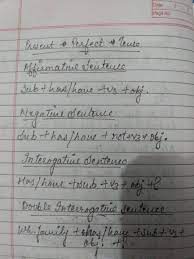 Page No.
Date
Present Perfect Tense
Affirmative Sentence
Sub + has/have + v3 + obj.
Negative Sentence
Sub + has/have + not + v3 + obj.
Interogative Sentence
Has/have + sub + v3 + obj + ?
Double Interrogative sentence
Wh family + has/have + sub + v3 +
obj + ?